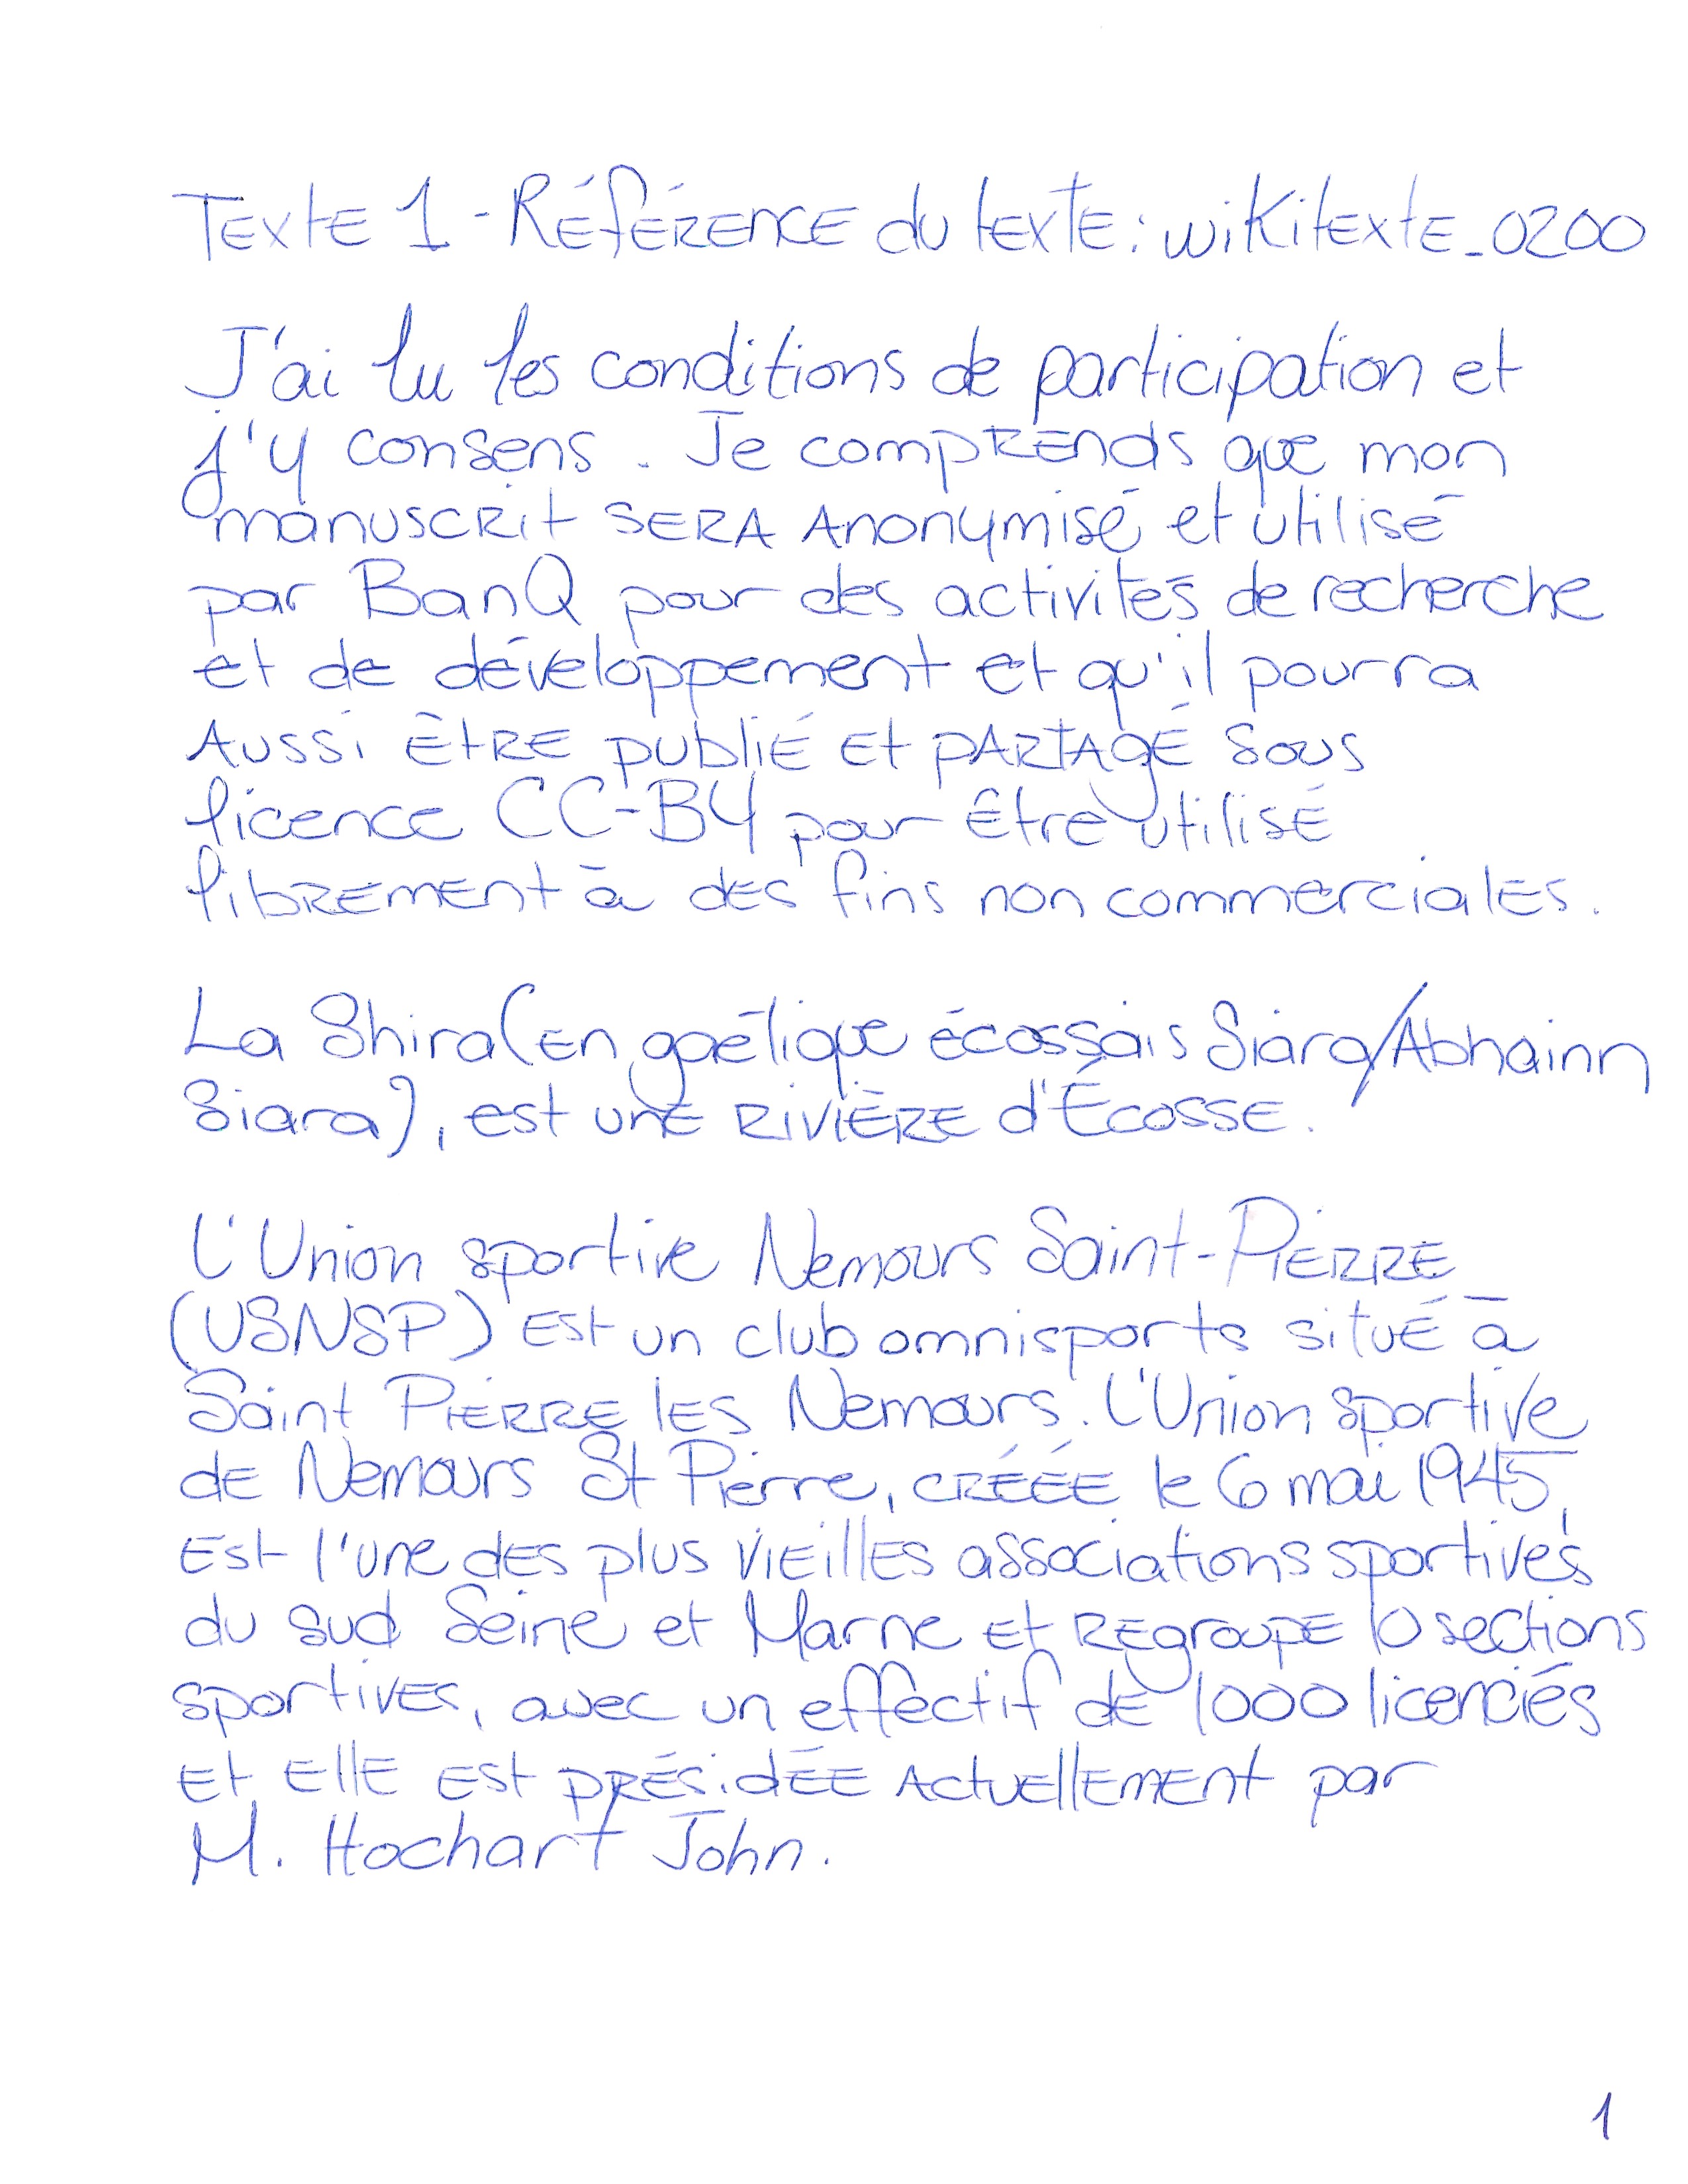 Texte 1 - Référence du texte : wikitexte_0200
J'ai lu les conditions de participation et
j'y consens. Je comprends que mon
manuscrit sera anonymisé et utilisé
par BanQ pour des activités de recherche
et de développement et qu'il pourra
aussi être publié et partagé sous
licence CC-BY pour être utilisé
librement à des fins non commerciales.
La Shira (en gaélique écossais Siara/Abhainn
Siara), est une rivière d'Écosse.
L'Union sportive Nemours Saint-Pierre
(USNSP) est un club omnisports situé à
Saint Pierre les Nemours. L'Union sportive
de Nemours St Pierre, créée le 6 mai 1945,
est l'une des plus vieilles associations sportives
du sud Seine et Marne et regroupe 10 sections
sportives, avec un effectif de 1000 licenciés
et elle est présidée actuellement par
M. Hochart John.
1